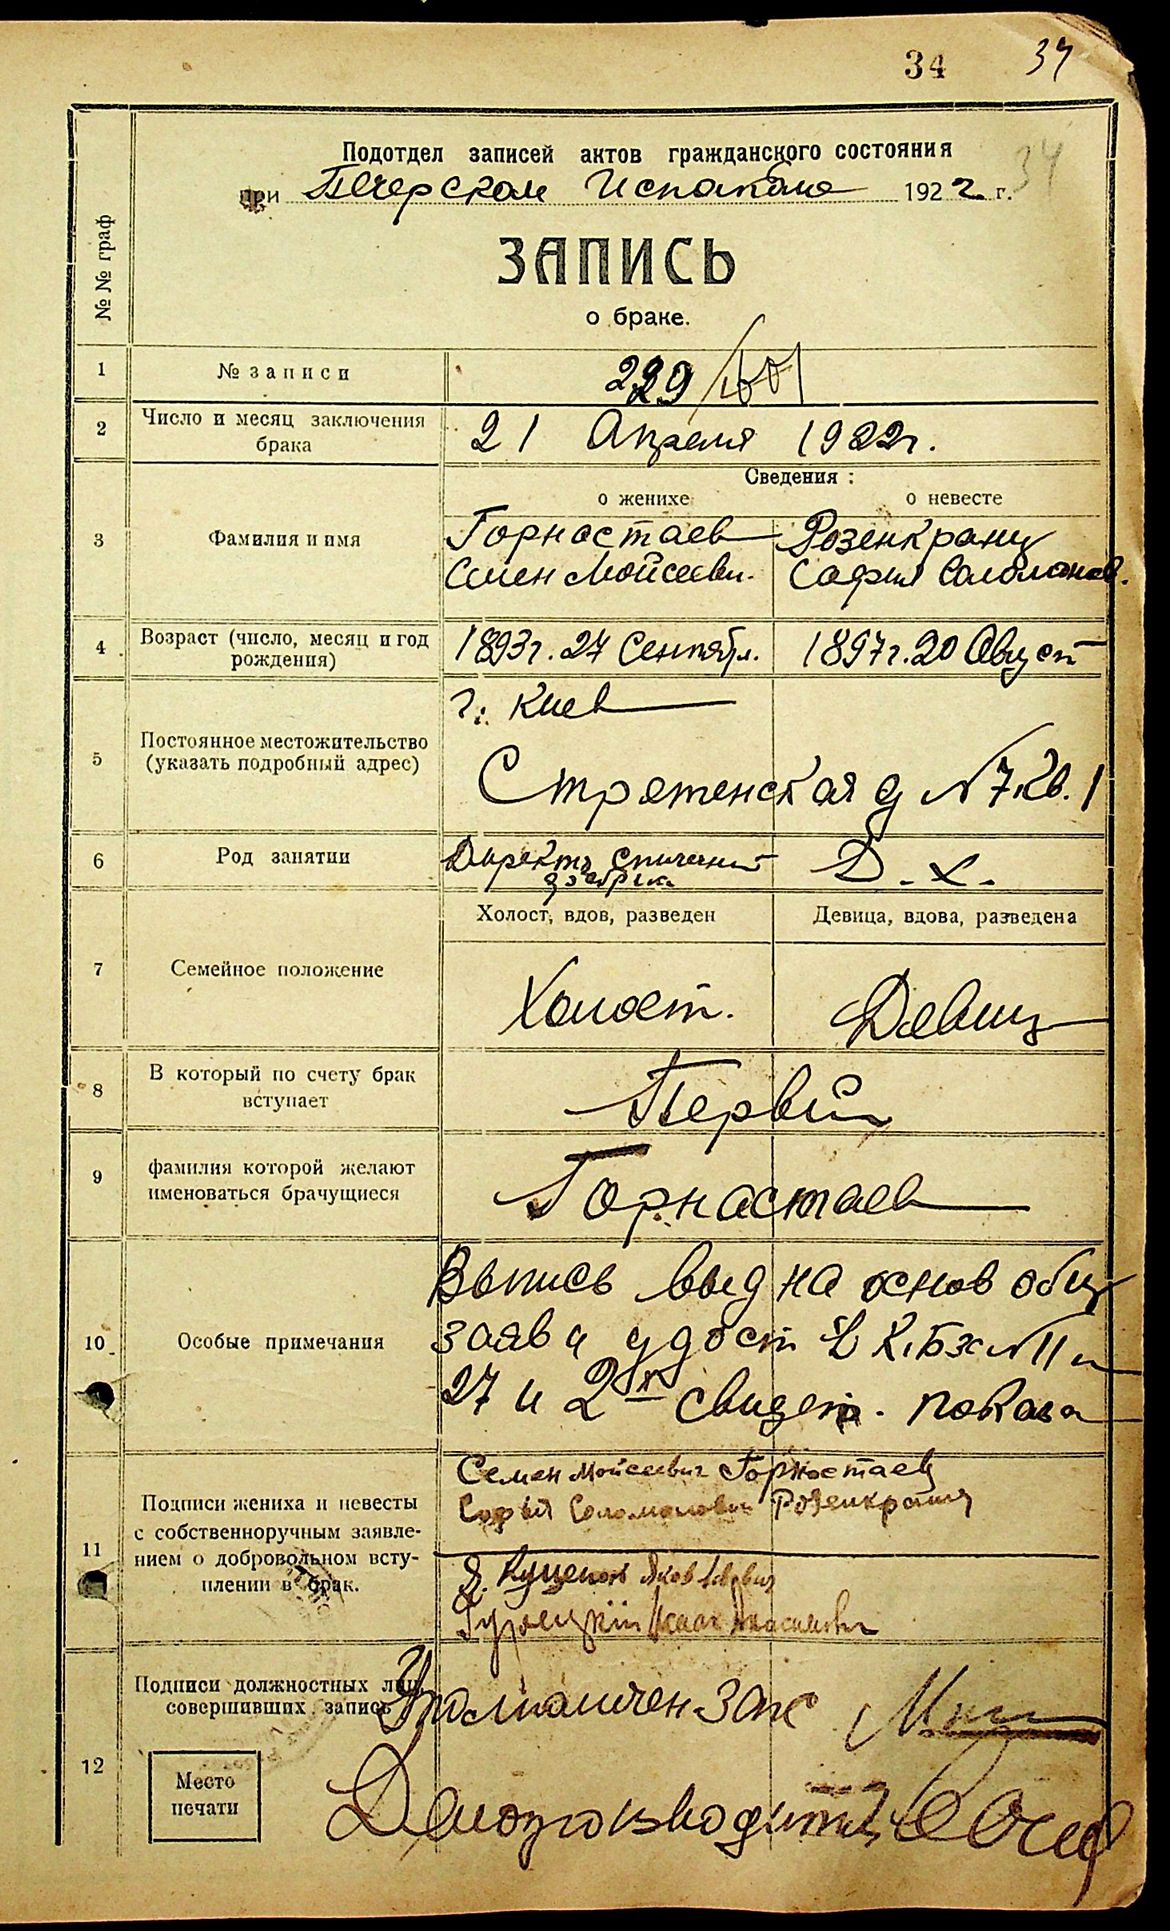 34 34
34
Подотдел записей актов гражданского состояния
при Печерском Исполкоме 1922 г.
ЗАПИСЬ
о браке.
№ № граф
1 № записи 229
2 Число и месяц заключения
брака
21 Апреля 1922г.
Сведения:
о женихе о невесте
3 Фамилия и имя
Горностаев Розенкранц
Семен Моисееви. София Соломонов.
4 Возраст (число, месяц и год
рождения)
1893г. 27 Сентябр. 1897г. 20 Август
5 Постоянное местожительство
(указать подробный адрес)
г. Киев
Стретенская д № 7 кв. 1
6 Род занятии
Директ спичечной Д. х.
фабрик
Холост, вдов, разведен Девица, вдова, разведена
7 Семейное положение
Холост. Девиц
8 В который по счету брак
вступает
Первый
9 фамилия которой желают
именоваться брачущиеся
Горностаев
10 Особые примечания
Выпись выд на основ общ
заяв и удост № 11 и
27 и 2х свидет. показа
11 Подписи жениха и невесты
с собственноручным заявле-
нием о добровольном всту-
плении в брак.
Семен Моисеевич Горностаев
Софья Соломоновн Розенкранц
12 Подписи должностных лиц,
совершивших запись
Место
печати
Делопроизводит